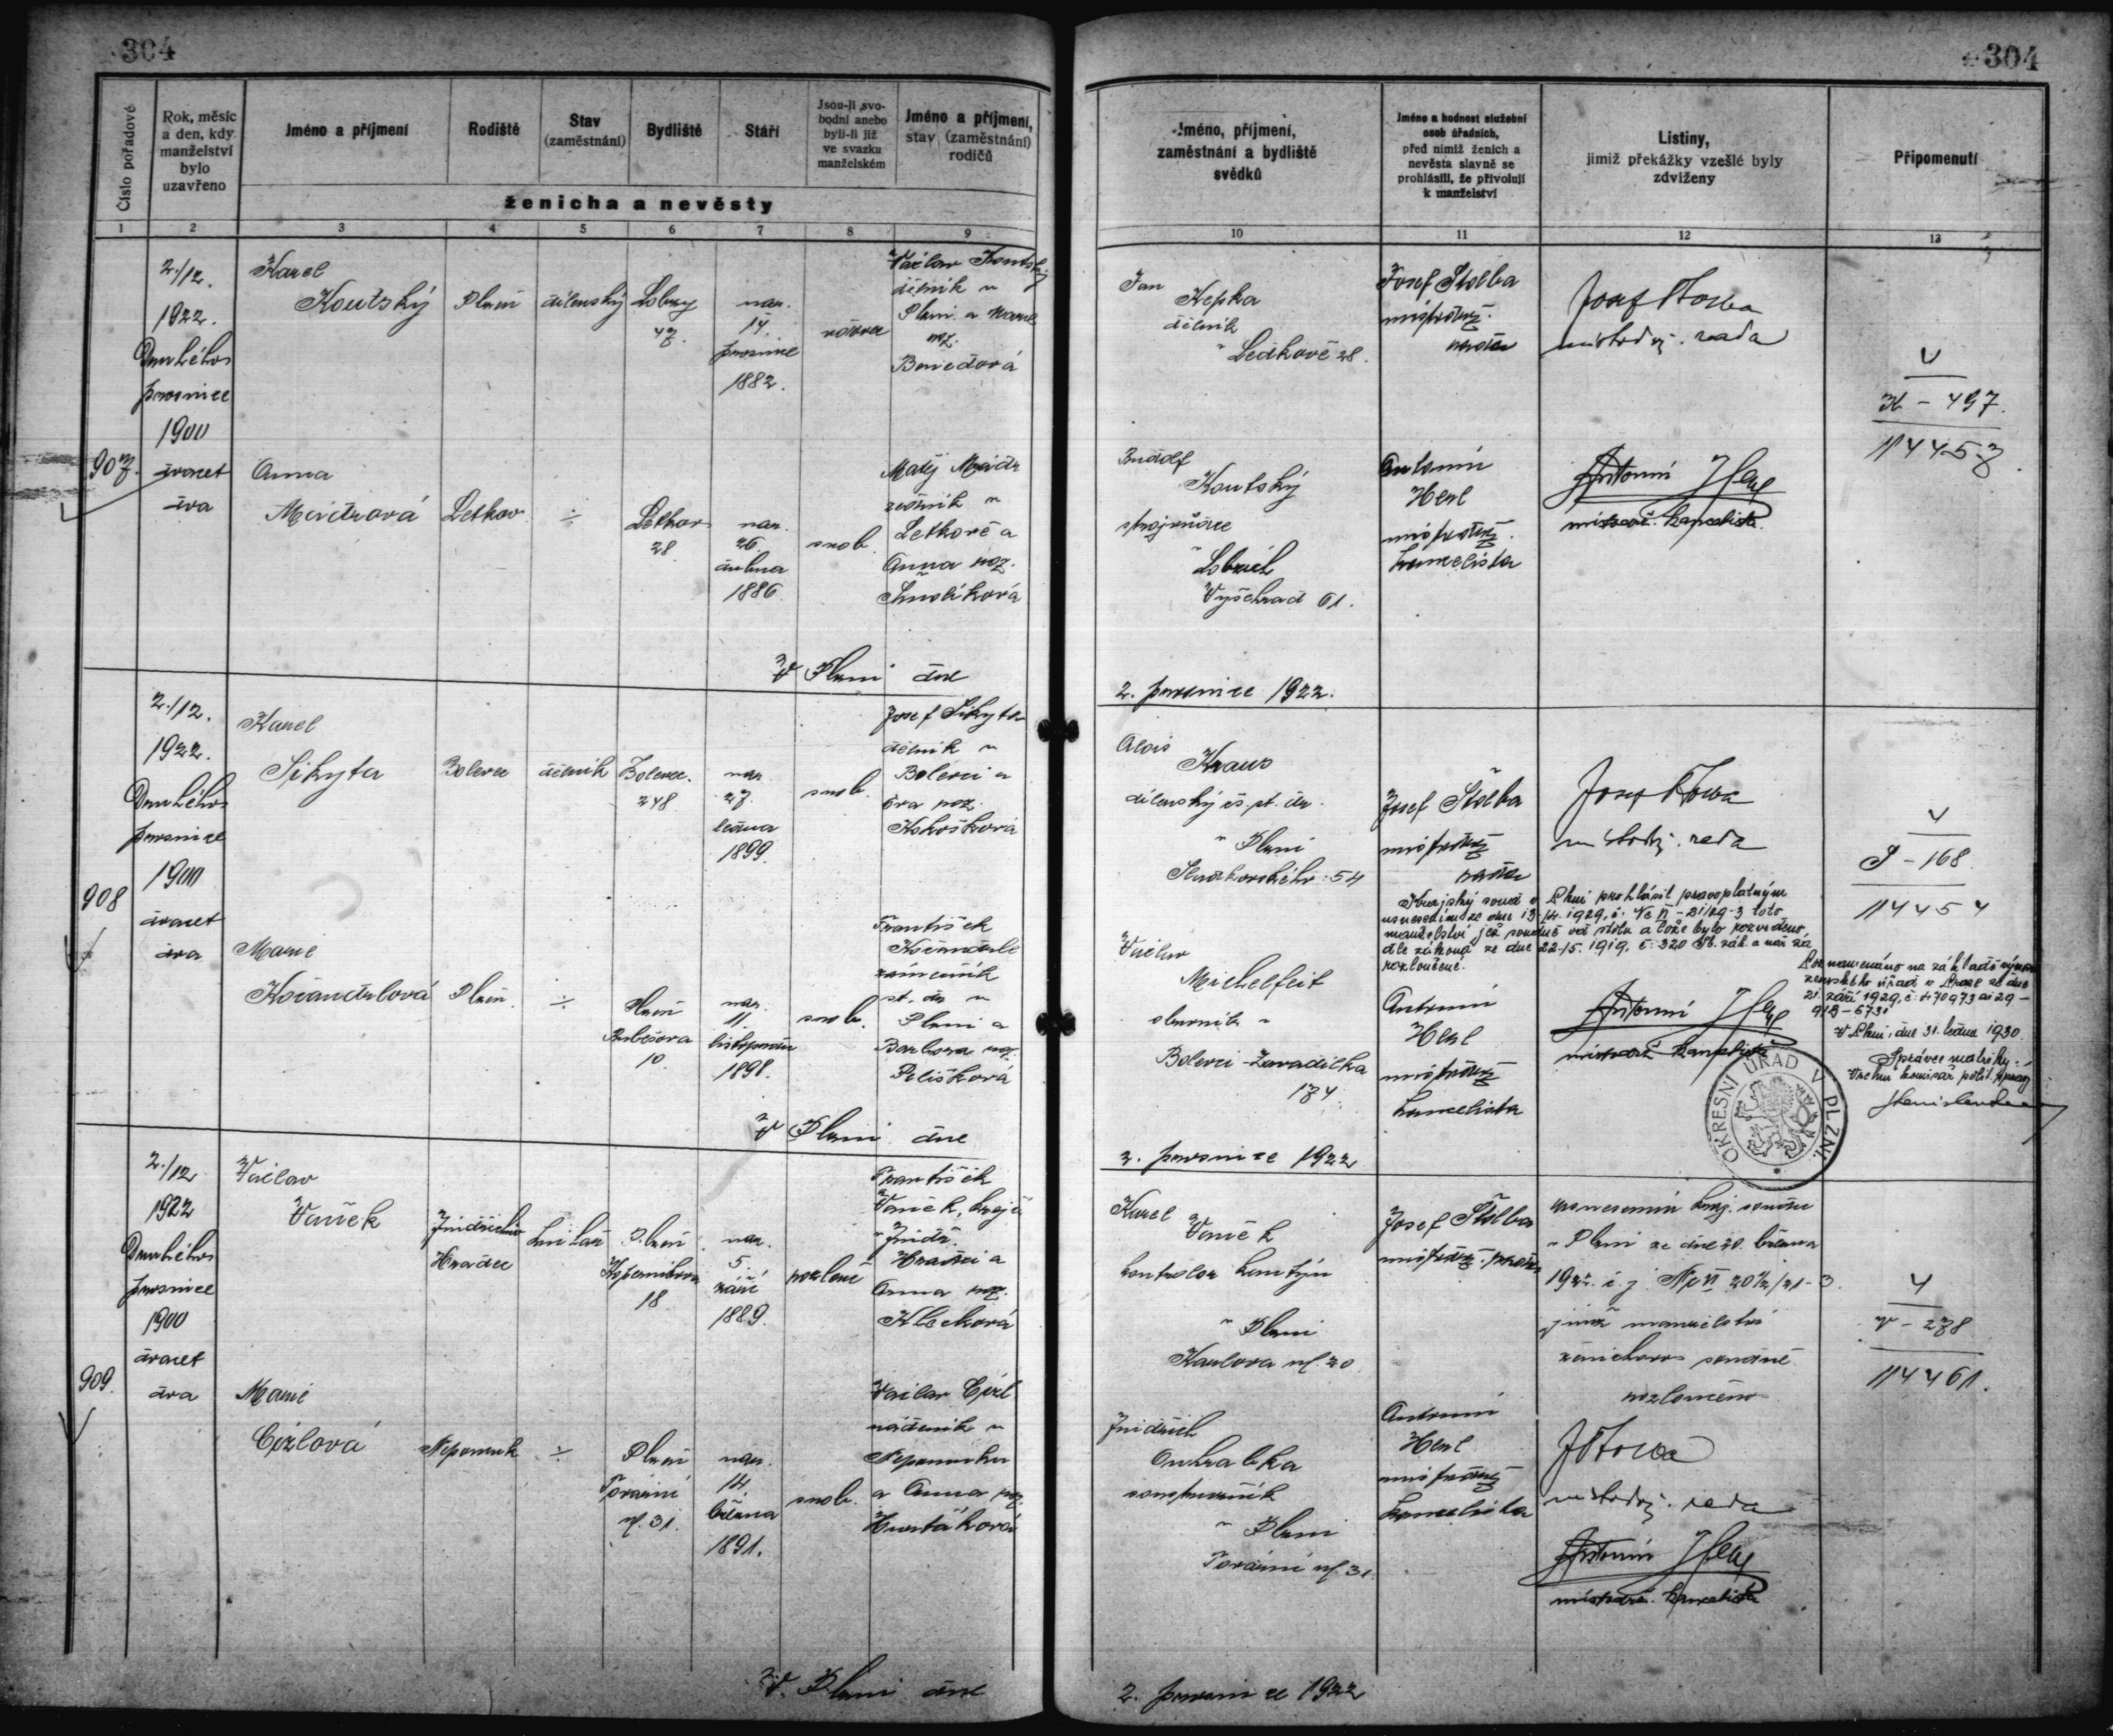 304
304
Číslo pořadové
Rok, měsíc
a den, kdy
manželství
bylo
uzavřeno
Jméno a příjmení
Rodiště
Stav
(zaměstnání)
Bydliště
Stáří
Jsou-li svo-
bodni anebo
byli-li již
ve svazku
manželském
Jméno a příjmení,
stav (zaměstnání)
rodičů
ženicha a nevěsty
1 2 3 4 5 6 7 8 9
Jméno, příjmení,
zaměstnání a bydliště
svědků
Jméno a hodnost služební
osob úřadních,
před nimiž ženich a
nevěsta slavně se
prohlásili, že přivolují
k manželství
Listiny,
jimiž překážky vzešlé byly
zdviženy
Připomenutí
10 11 12 13
907.
2./12.
1922.
Druhého
prosince
1900
dvacet
dva
Karel
Koutský
Plzeň
dílenský
Lobzy
47.
nar.
14.
prosince
1882.
vdovec
Václav Koutský
dělník v
Plzni a Marie
roz.
Anna
Letkov
÷
Letkov
28
nar.
26.
dubna
1886.
svob.
Matěj
v
Letkově a
Anna roz.
V Plzni dne
Jan
Kepka
dělník
v Letkově 28.
Josef Štolba
místodrž.
rada
Josef Štolba
místodrž. rada
V
K - 497.
114457.
Rudolf
Koutský
strojvůdce
v Lobzích
Vyšehrad 61.
Antonín
Hesl
místodrž.
kancelista
Antonín Hesl
místodrž. kancelista
2. prosince 1922.
908
2./12.
1922.
Druhého
prosince
1900
dvacet
dva
Karel
Sikyta
Bolevec
dělník
Bolevec
248.
nar.
27.
ledna
1899.
svob.
Josef Sikyta
dělník v
Bolevci a
Eva roz.
Marie
Kočandrlová
Plzeň
÷
Plzeň
10.
nar.
11.
listopadu
1898.
svob.
František
Kočandrle
zámečník
st. dr. v
Plzni a
Barbora roz.
Pelíšková
V Plzni dne
Alois
Kraus
dílenský čs. st. dr.
v Plzni
54
Josef Štolba
místodrž.
rada
Josef Štolba
místodrž. rada
V
S - 168
114454
Krajský soud v Plzni prohlásil pravoplatným
usnesením ze dne 13./4. 1929, č. Nc VI - 21/29-3 toto
manželství, jež soudně od stolu a lože bylo rozvedeno,
dle zákona ze dne 22./5. 1919, č. 320 Sb. zák. a nař. za
rozloučené.
Václav
Michelfeit
v
Bolevci - Zavadilka
174.
Antonín
Hesl
místodrž.
kancelista
Antonín Hesl
místodrž. kancelista
Poznamenáno na základě výnosu
zemského úřadu v Praze ze dne
21. září 1929, č. 470973 ai 29 -
V Plzni, dne 31. ledna 1930.
Správce matriky:
Vrchní komisař polit. správy
OKRESNÍ ÚŘAD V PLZNI.
2. prosince 1922
909.
2./12
1922
Druhého
prosince
1900
dvacet
dva
Václav
Vaněk
Jindřichův
Hradec
Plzeň
Koperníkova
18.
nar.
5.
září
1889.
rozlouč.
František
Vaněk, krejčí
v Jindř.
Hradci a
Anna roz.
Klečková
Marie
Cízlová
Nepomuk
÷
Plzeň
Tovární
ul. 31.
nar.
14.
března
1891.
svob.
Václav Cízl
nádeník v
Nepomuku
a Anna roz.
V Plzni dne
Karel
Vaněk
kontrolor kantýn
v Plzni
Karlova ul. 20
Josef Štolba
místodrž. rada
usnesením kraj. soudu
v Plzni ze dne 20. března
1922 č. j. Nc VI 204/21-3.
jímž manželství
ženichovo soudně
rozloučeno
V
V - 278
114461.
Jindřich
Ouhrabka
v Plzni
Tovární ul. 31.
Antonín
Hesl
místodrž.
kancelista
JŠtolba
místodrž. rada
Antonín Hesl
místodrž. kancelista
2. prosince 1922